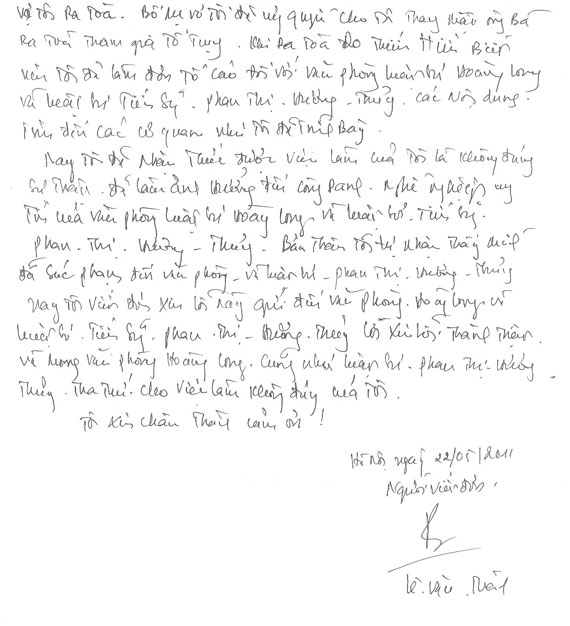 vợ tôi Ra Toà. Bố mẹ vợ Tôi đã uỷ quyền cho Tôi Thay mặt ông Bà
Ra Toà Tham gia Tố Tụng. Khi Ra Toà Do Thiếu Hiểu Biết
nên Tôi đã làm đơn Tố cáo đối với văn phòng luật sư Hoàng Long
và luật sư Tiến Sỹ. phan Thị. Hương - Thuỷ. các Nội dung.
đến các cơ quan như Tôi đã Trình Bày.
Nay Tôi đã Nhận Thức được việc làm của Tôi là không đúng
sự Thật. đã làm ảnh hưởng đến công Danh. Nghề nghiệp uy
Tín của văn phòng luật sư Hoàng Long và luật sư. Tiến Sỹ.
phan. Thị. Hương - Thuỷ - Bản Thân Tôi tự nhận Thấy mình
đã xúc phạm đến văn phòng - và luật sư - phan Thị. Hương - Thuỷ
Nay Tôi viết đơn xin lỗi này gửi đến văn phòng. Hoàng Long và
luật sư. Tiến Sỹ. phan. Thị - Hương. Thuỷ lời xin lỗi. Thành Thật.
và mong văn phòng Hoàng Long. Cũng như luật sư. phan Thị. Hương
Thuỷ. Tha Thứ. cho việc làm không đúng của Tôi.
Tôi xin chân Thành cảm ơn!
Hà Nội, ngày 22/05/2011
Người viết đơn.
Lê. Văn